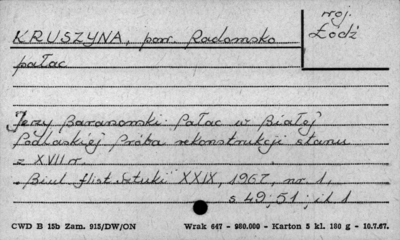 KRUSZYNA, pow. Radomsko
woj. Łodź
pałac
Jerzy Baranowski: Pałac w Białej
Podlaskiej Próba rekonstrukcji stanu
z XVII w.
Biul. Hist. Sztuki XXIX, 1967, nr 1,
s 49, 51; il 1
CWD B 15b Zam. 915/DW/ON Wrak 647 - 980.000 - Karton 5 kl. 180 g - 10.7.67.